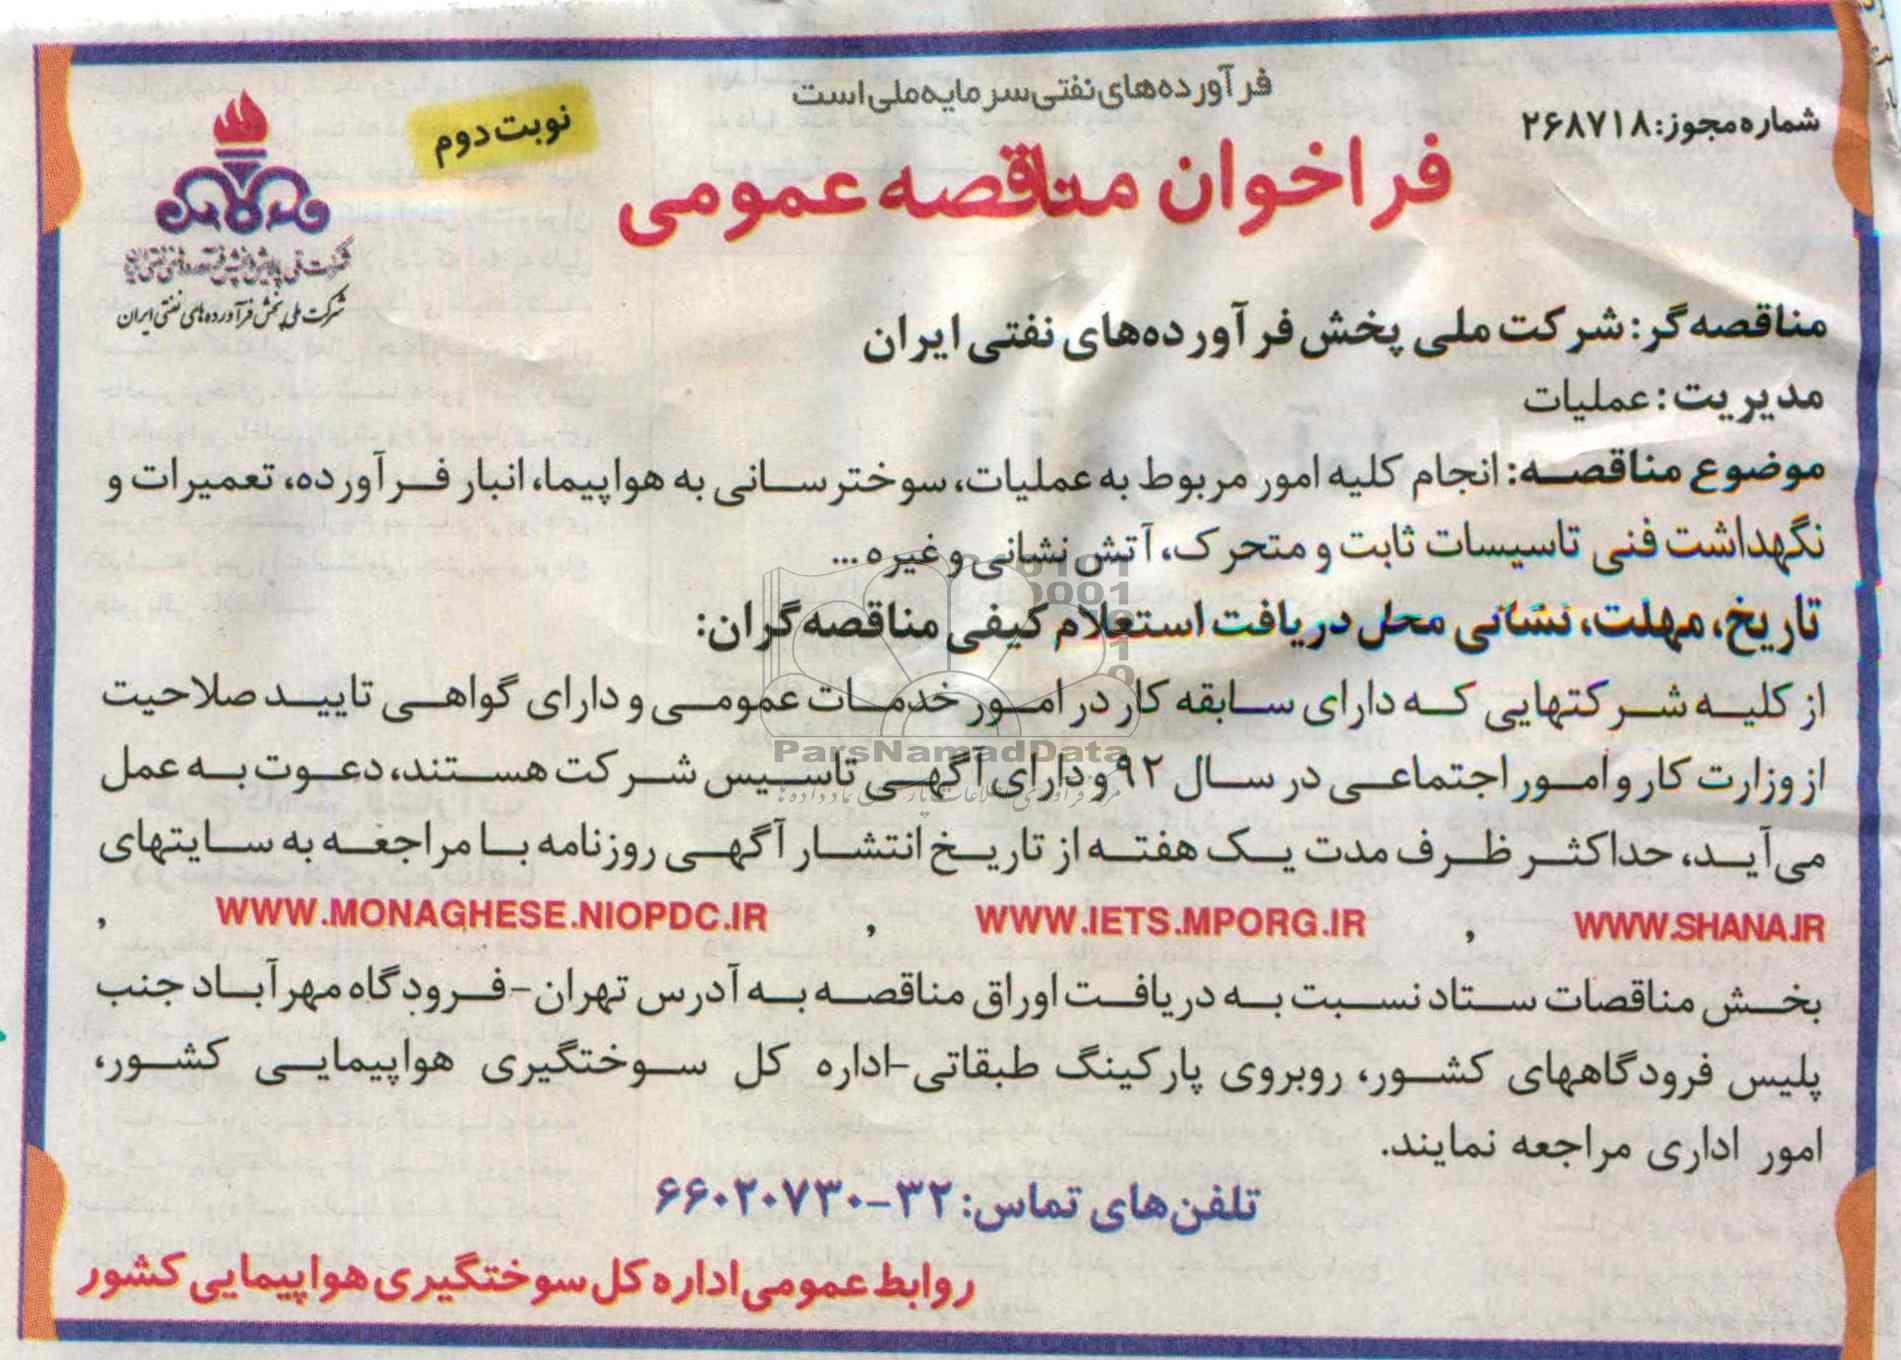 فرآورده‌های نفتی سرمایه ملی است
شماره مجوز: ۲۶۸۷۱۸
نوبت دوم
فراخوان مناقصه عمومی
شرکت ملی پالایش و پخش فرآورده‌های نفتی ایران
شرکت ملی پخش فرآورده‌های نفتی ایران
مناقصه‌گر: شرکت ملی پخش فرآورده‌های نفتی ایران
مدیریت: عملیات
موضوع مناقصه: انجام کلیه امور مربوط به عملیات، سوخترسانی به هواپیما، انبار فرآورده، تعمیرات و
نگهداشت فنی تاسیسات ثابت و متحرک، آتش نشانی و غیره ...
تاریخ، مهلت، نشانی محل دریافت استعلام کیفی مناقصه‌گران:
از کلیه شرکتهایی که دارای سابقه کار در امور خدمات عمومی و دارای گواهی تایید صلاحیت
از وزارت کار و امور اجتماعی در سال ۹۲ و دارای آگهی تاسیس شرکت هستند، دعوت به عمل
می‌آید، حداکثر ظرف مدت یک هفته از تاریخ انتشار آگهی روزنامه با مراجعه به سایتهای
WWW.SHANA.IR , WWW.IETS.MPORG.IR , WWW.MONAGHESE.NIOPDC.IR ,
بخش مناقصات ستاد نسبت به دریافت اوراق مناقصه به آدرس تهران-فرودگاه مهرآباد جنب
پلیس فرودگاههای کشور، روبروی پارکینگ طبقاتی-اداره کل سوختگیری هواپیمایی کشور،
امور اداری مراجعه نمایند.
تلفن‌های تماس: ۳۲-۶۶۰۲۰۷۳۰
روابط عمومی اداره کل سوختگیری هواپیمایی کشور
ParsNamadData